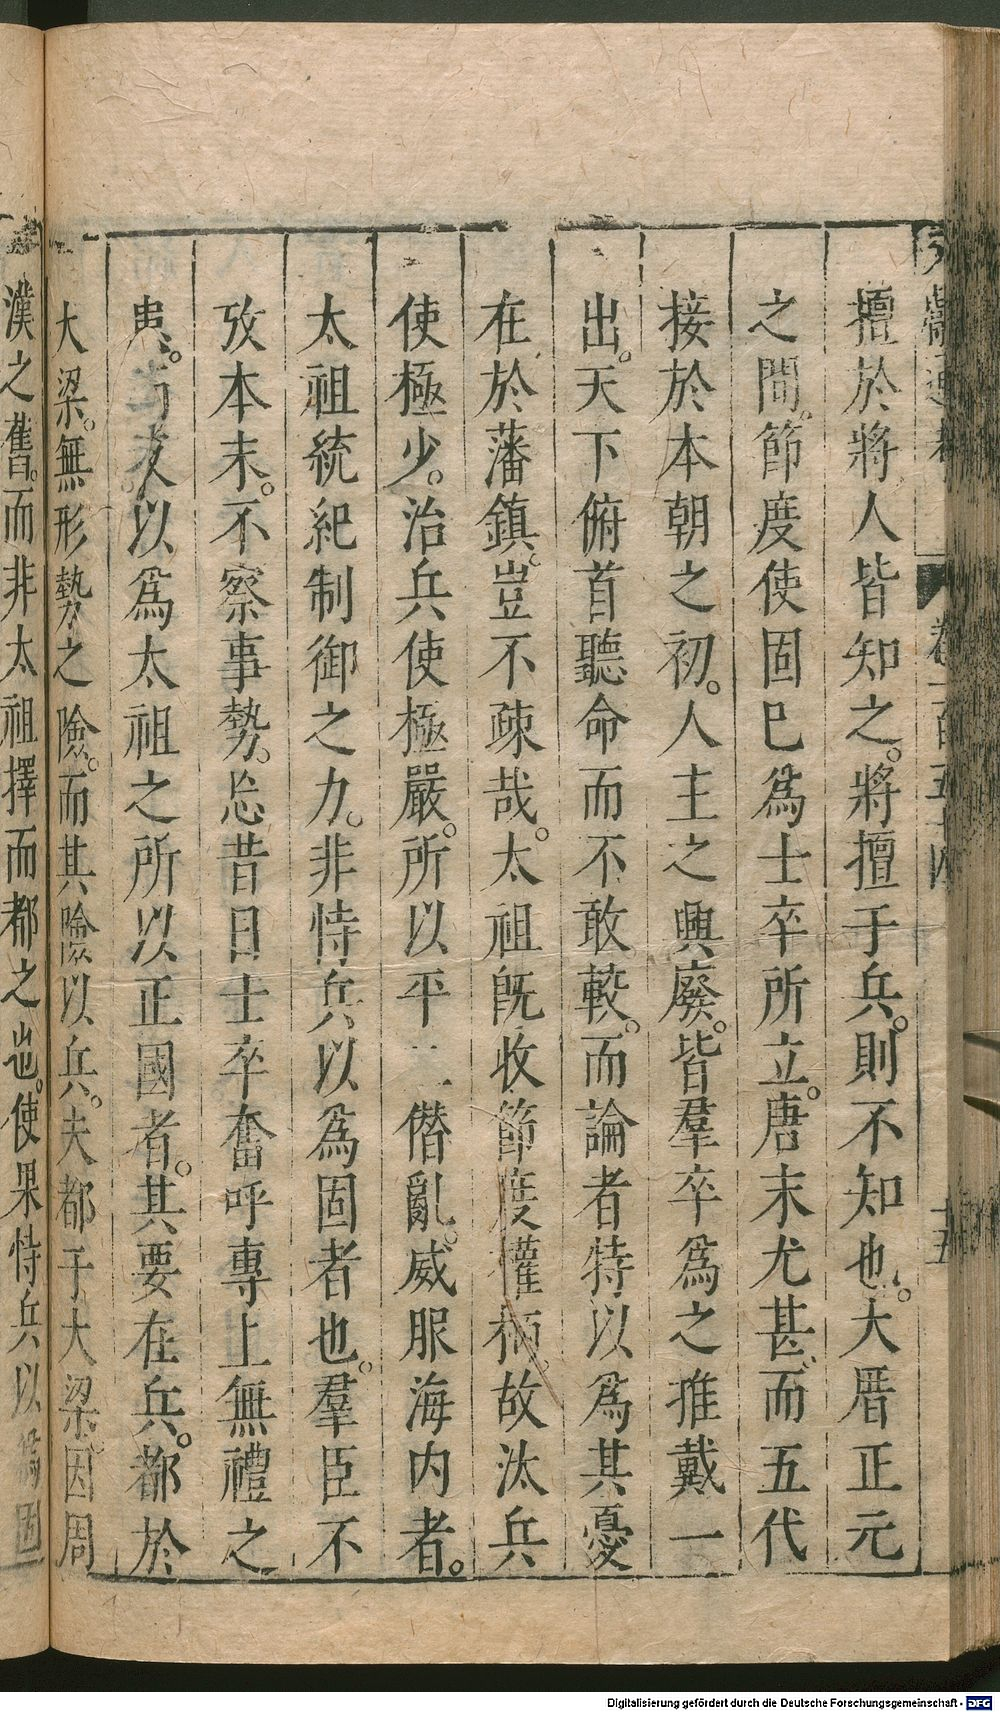 擅於將人皆知之。將擅于兵。則不知也。大曆正元
之間。節度使固巳爲士卒所立。唐末尤甚。而五代
接於本朝之初。人主之興廢。皆羣卒爲之推戴一
出。天下俯首聽命而不敢較。而論者特以爲其憂
在於藩鎮。豈不疎哉。太祖旣收節度權柄。故汰兵
使極少。治兵使極嚴。所以平一僭亂。威服海内者。
太祖統紀制御之力。非恃兵以爲固者也。羣臣不
攷本末。不察事勢。忘昔日士卒奮呼專上無禮之
患。方以爲太祖之所以正國者。其要在兵。都於
大梁。無形勢之險。而其險以兵。夫都于大梁。因周
漢之舊。而非太祖擇而都之也。使果恃兵以爲固
卷一百五十四
十五
Digitalisierung gefördert durch die Deutsche Forschungsgemeinschaft - DFG